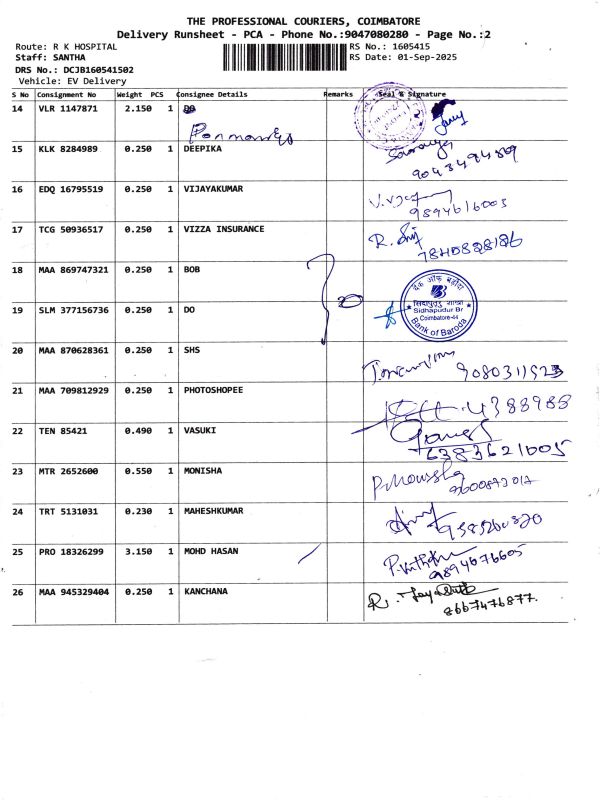 THE PROFESSIONAL COURIERS, COIMBATORE
Delivery Runsheet - PCA - Phone No.:9047080280 - Page No.:2
Route: R K HOSPITAL RS No.: 1605415
Staff: SANTHA RS Date: 01-Sep-2025
DRS No.: DCJB160541502
Vehicle: EV Delivery
S No Consignment No Weight PCS Consignee Details Remarks Seal & Signature
14 VLR 1147871 2.150 1 DO
15 KLK 8284989 0.250 1 DEEPIKA
9043494869
16 EDQ 16795519 0.250 1 VIJAYAKUMAR
9894616005
17 TCG 50936517 0.250 1 VIZZA INSURANCE
18 MAA 869747321 0.250 1 BOB
बैंक ऑफ़ बड़ौदा
सिद्धापुदुर शाखा
Sidhapudur Br
Coimbatore-44
Bank of Baroda
19 SLM 377156736 0.250 1 DO
20 MAA 870628361 0.250 1 SHS
9080311523
21 MAA 709812929 0.250 1 PHOTOSHOPEE
22 TEN 85421 0.490 1 VASUKI
6383621005
23 MTR 2652600 0.550 1 MONISHA
24 TRT 5131031 0.230 1 MAHESHKUMAR
25 PRO 18326299 3.150 1 MOHD HASAN
9894676605
26 MAA 945329404 0.250 1 KANCHANA
8667476877.